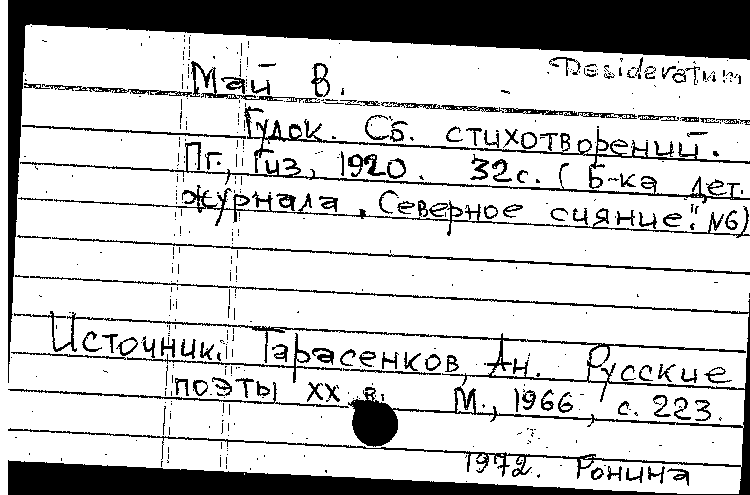 Desideratum
Май В.
Гудок. Сб. стихотворений.
Пг., Гиз, 1920. 32с. (Б-ка дет.
журнала „Северное сияние". №6)
Источник: Тарасенков, Ан. Русские
поэты XX в. М., 1966, с. 223.
1972. Ронина